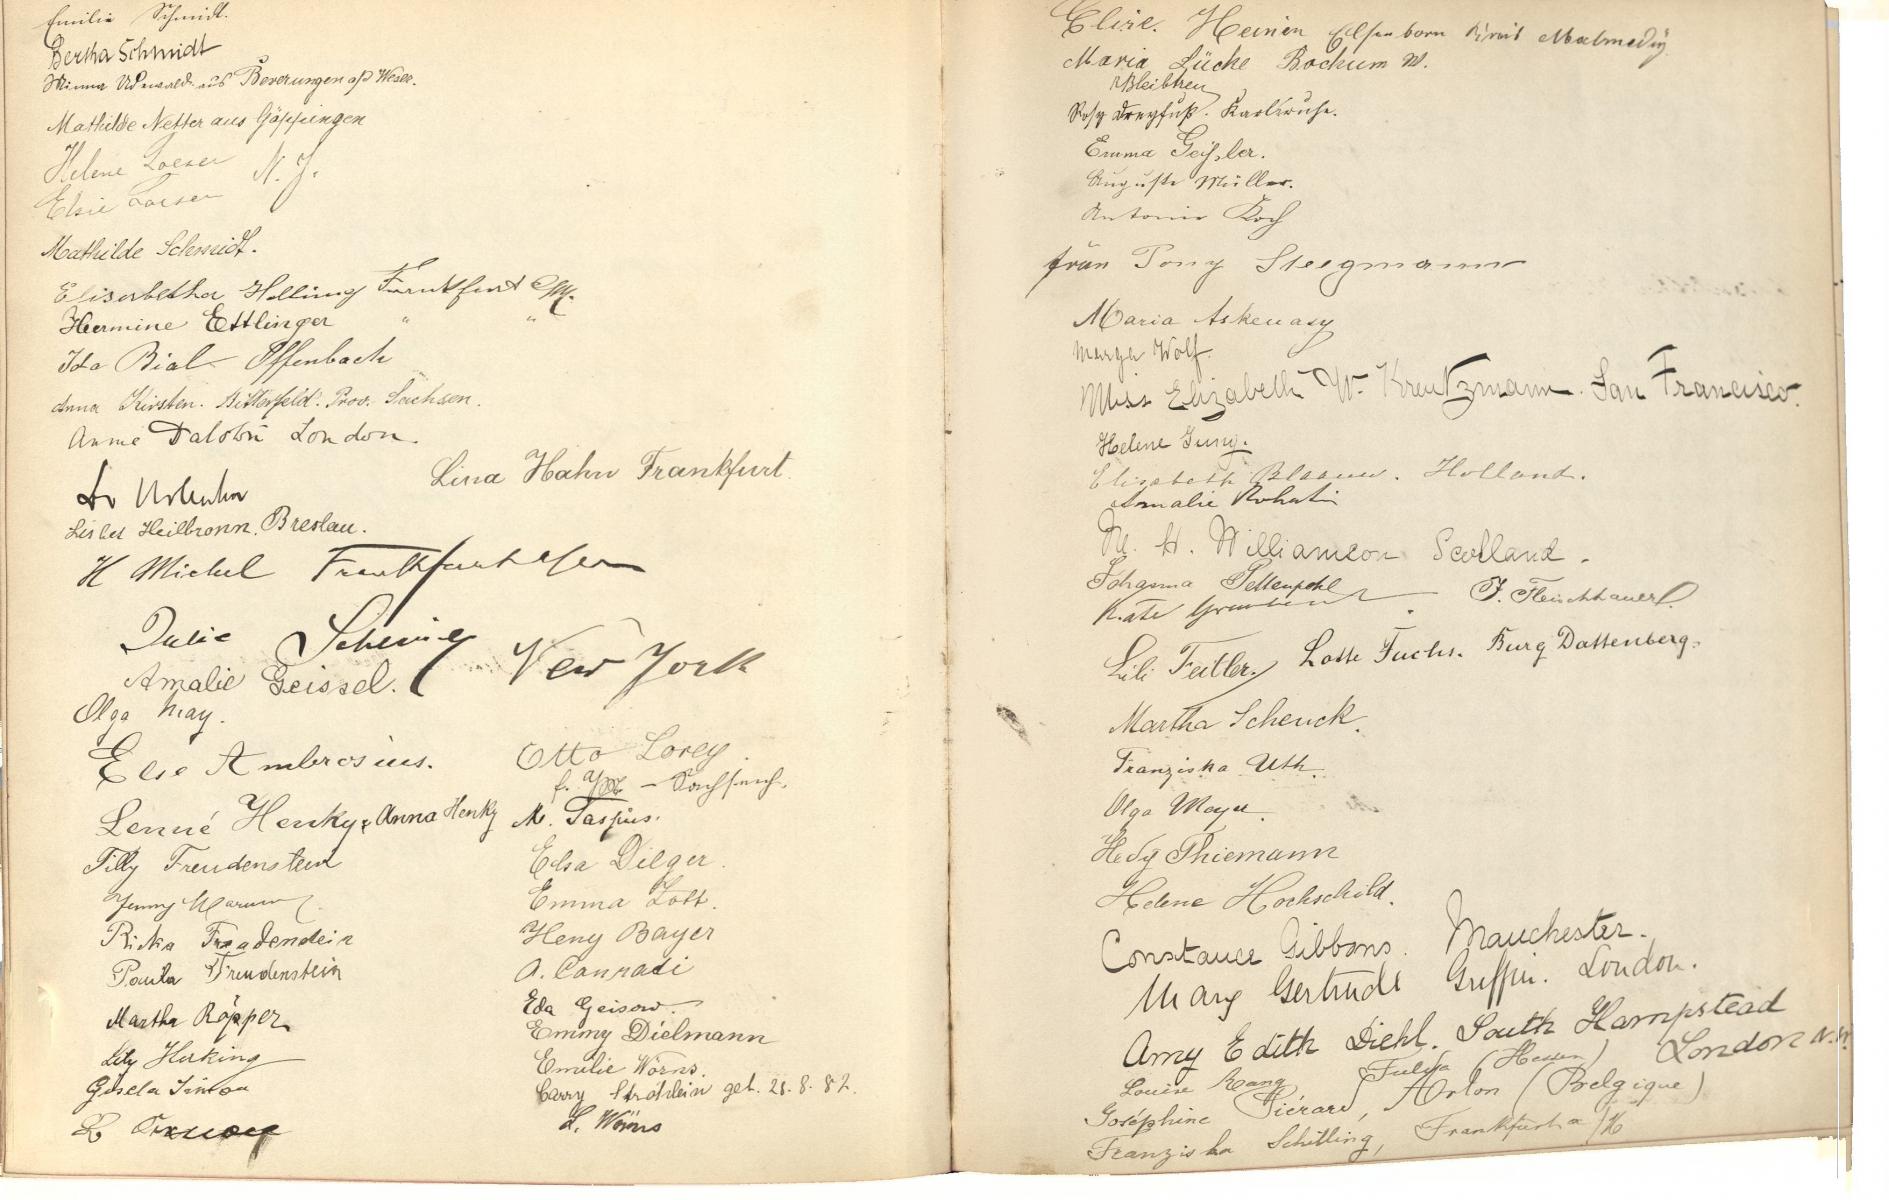 Emilie Schmidt.
Bertha Schmidt
Minna aus Beverungen a/d Weser.
Mathilde Netter aus Göppingen
Helene Loeser N. J.
Elsie Loeser
Mathilde Schmidt.
Elisabetha Helling Frankfurt a/M.
Hermine Ettlinger " "
Ida Bial Offenbach
Anna Kirsten. Bitterfeld. Prov. Sachsen.
Annie London.
Lina Hahn Frankfurt.
Lisbet Heilbronn. Breslau.
H Michel
Julie New York
Amalie Geissel.
Olga May.
Else Ambrosius.
Otto Lorey
Lenné Henky & Anna Henky
M. Taspius.
Tilly Freudenstein
Elsa Dilger.
Jenny
Emma
Ricka Freudenstein
Heny Bayer
Paula Freudenstein
A. Conradi
Martha Röpper
Eda Geisow
Emmy Dielmann
Lily Herking
Emilie Wörns.
Gisela Simon
Carry Ströhlein geb. 28. 8. 82.
L. Wörns
Elise. Heinen Elsenborn Kreis Malmedy
Maria Lücke Bochum W.
Rosy Dreyfuß. Karlsruhe.
Emma Geißler.
Auguste Müller.
Antonie Koch
Tony Steegmann
Maria Askenasy
Marga Wolf.
Miss Elizabeth W. Kreutzmann. San Francisco.
Helene Jung.
Elisabeth Blaauw. Holland.
Amalie
M. H. Williamson Scotland.
Johanna Pettenpohl
Kate J. Fleischhauer
Lili Feitler. Lotte Fuchs. Burg Dattenberg.
Martha Schenck.
Franziska Uth.
Olga Mayer.
Hedy Thiemann
Helene Hochschild.
Constance Gibbons. Manchester.
Mary Gertrude Griffin. London.
Amy Edith Diehl. South Hampstead
London N.W.
Louise Rang Fulda (Hessen)
Joséphine Piérard, Arlon (Belgique)
Franziska Schilling, Frankfurt a/M